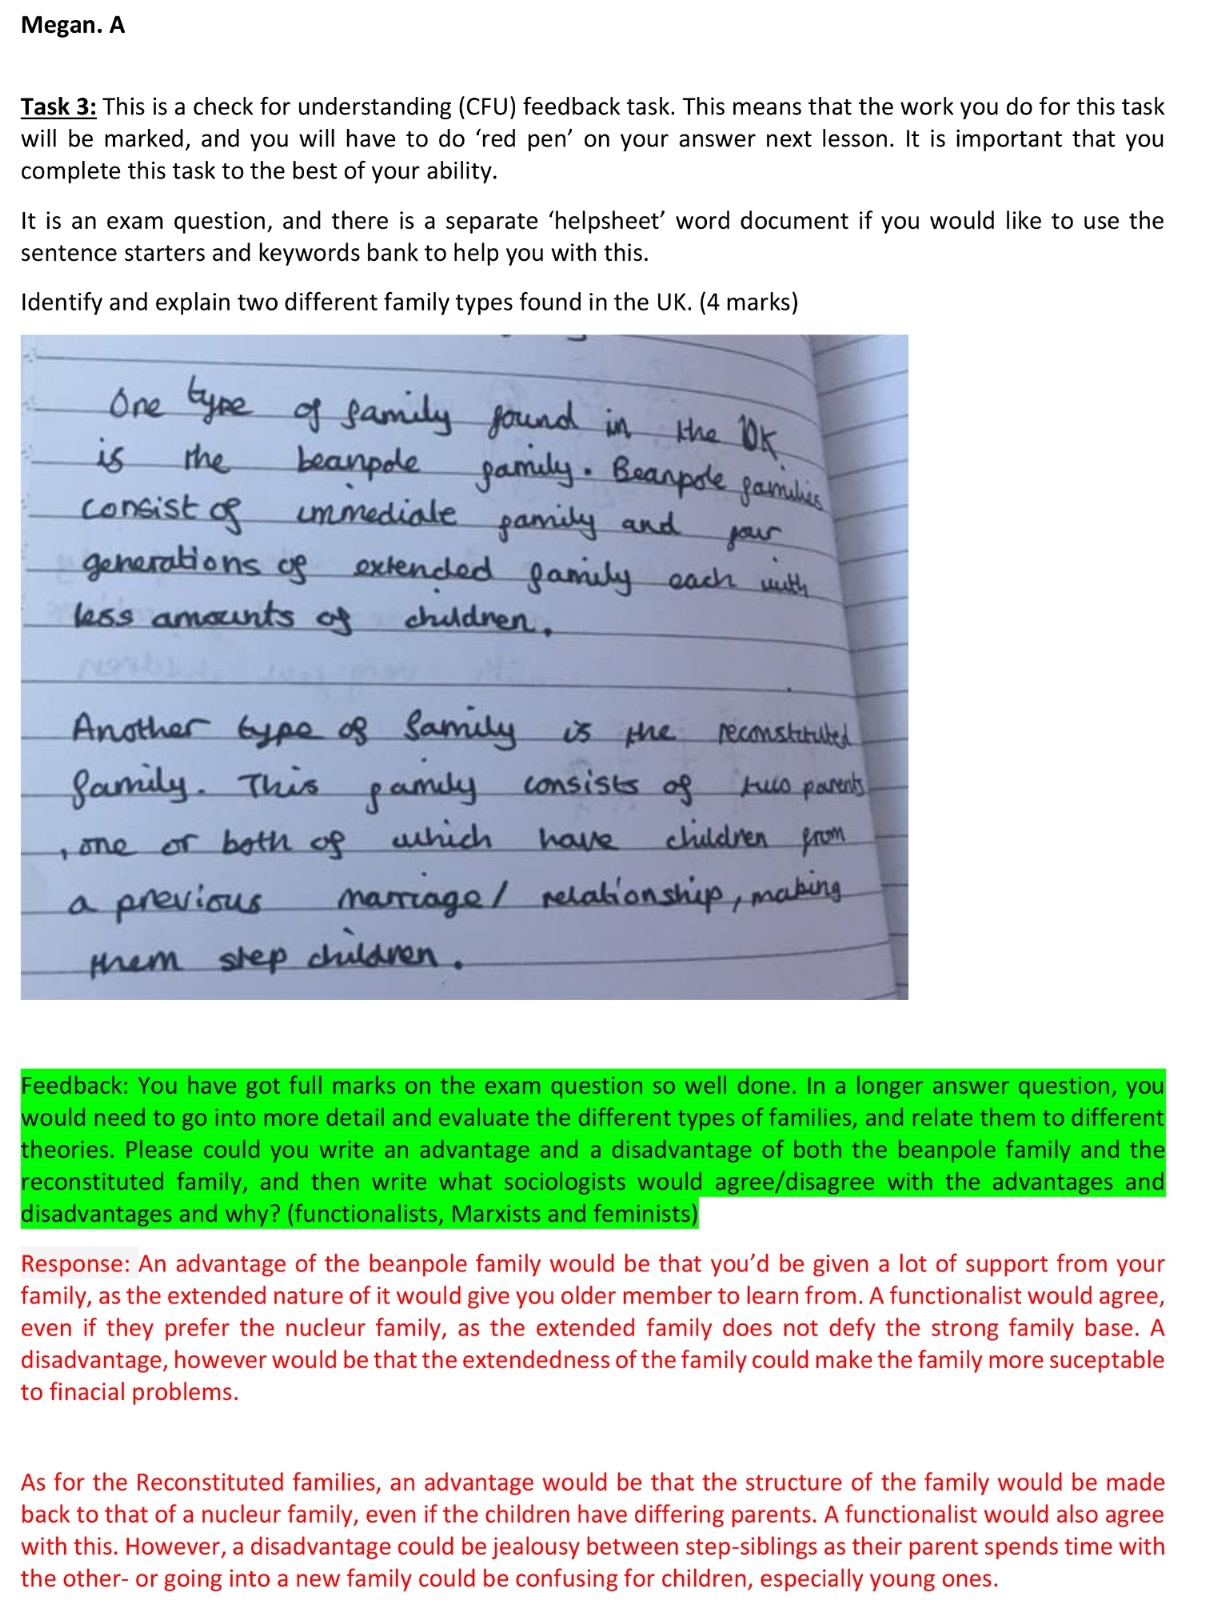 Megan. A
Task 3: This is a check for understanding (CFU) feedback task. This means that the work you do for this task
will be marked, and you will have to do ‘red pen’ on your answer next lesson. It is important that you
complete this task to the best of your ability.
It is an exam question, and there is a separate ‘helpsheet’ word document if you would like to use the
sentence starters and keywords bank to help you with this.
Identify and explain two different family types found in the UK. (4 marks)
One type of family found in the UK
is the beanpole family. Beanpole families
consist of immediate family and four
generations of extended family each with
less amounts of children.
Another type of family is the reconstituted
family. This family consists of two parents
, one or both of which have children from
a previous marriage/ relationship, making
them step children.
Feedback: You have got full marks on the exam question so well done. In a longer answer question, you
would need to go into more detail and evaluate the different types of families, and relate them to different
theories. Please could you write an advantage and a disadvantage of both the beanpole family and the
reconstituted family, and then write what sociologists would agree/disagree with the advantages and
disadvantages and why? (functionalists, Marxists and feminists)
Response: An advantage of the beanpole family would be that you’d be given a lot of support from your
family, as the extended nature of it would give you older member to learn from. A functionalist would agree,
even if they prefer the nucleur family, as the extended family does not defy the strong family base. A
disadvantage, however would be that the extendedness of the family could make the family more suceptable
to finacial problems.
As for the Reconstituted families, an advantage would be that the structure of the family would be made
back to that of a nucleur family, even if the children have differing parents. A functionalist would also agree
with this. However, a disadvantage could be jealousy between step-siblings as their parent spends time with
the other- or going into a new family could be confusing for children, especially young ones.